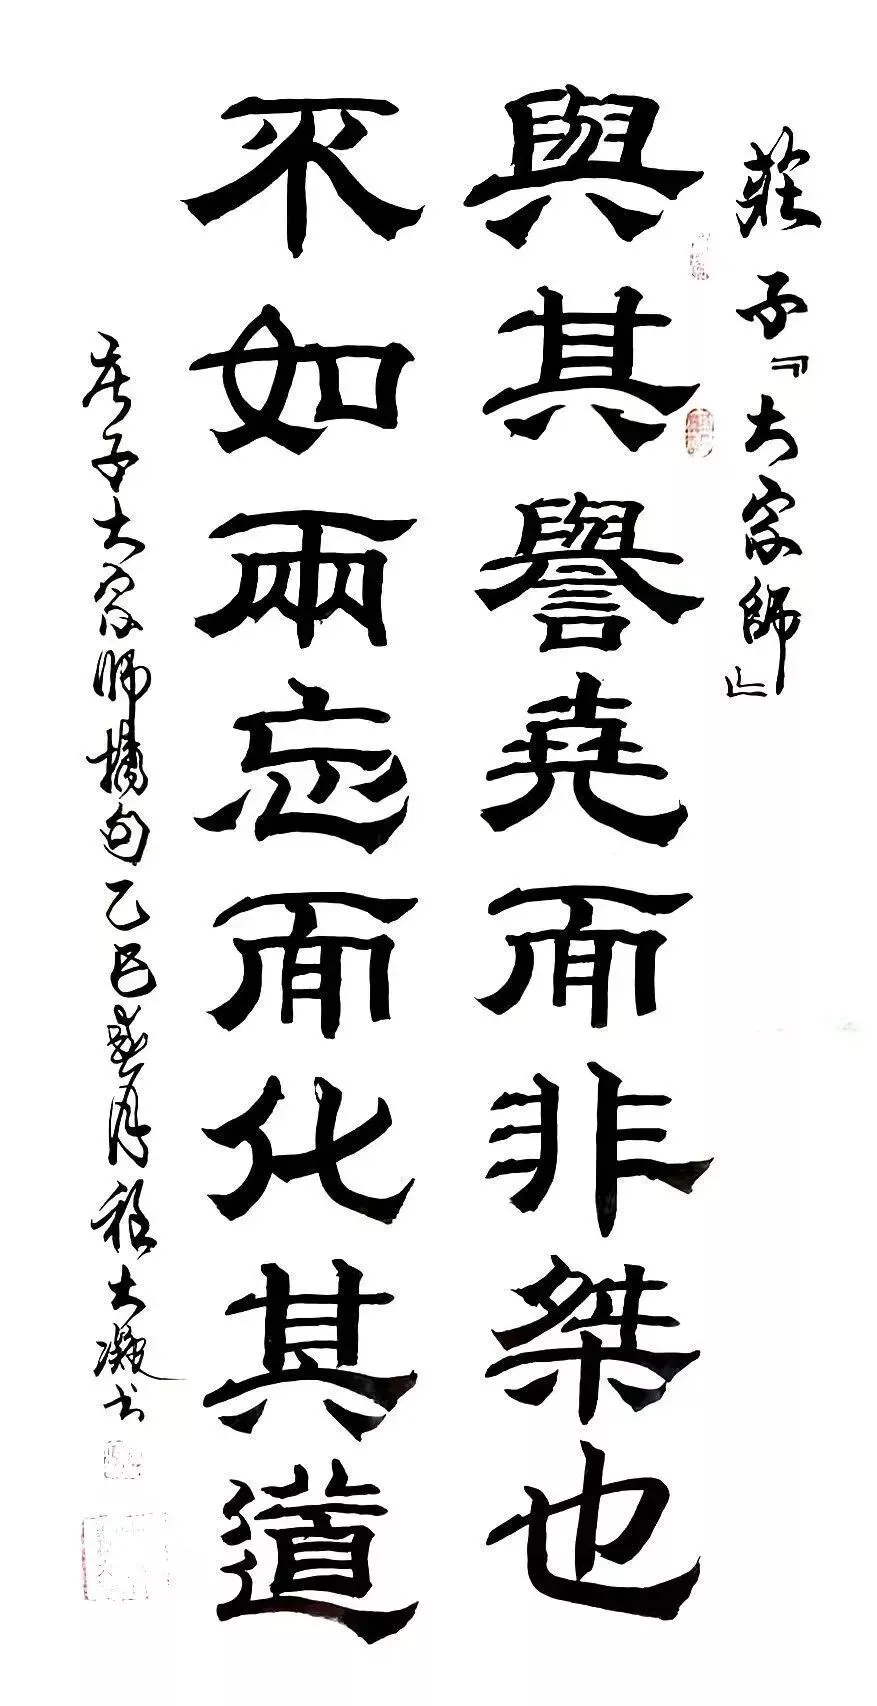 莊子『大宗師』
與其譽堯而非桀也
不如兩忘而化其道
莊子大宗師摘句乙巳春月程大凝书